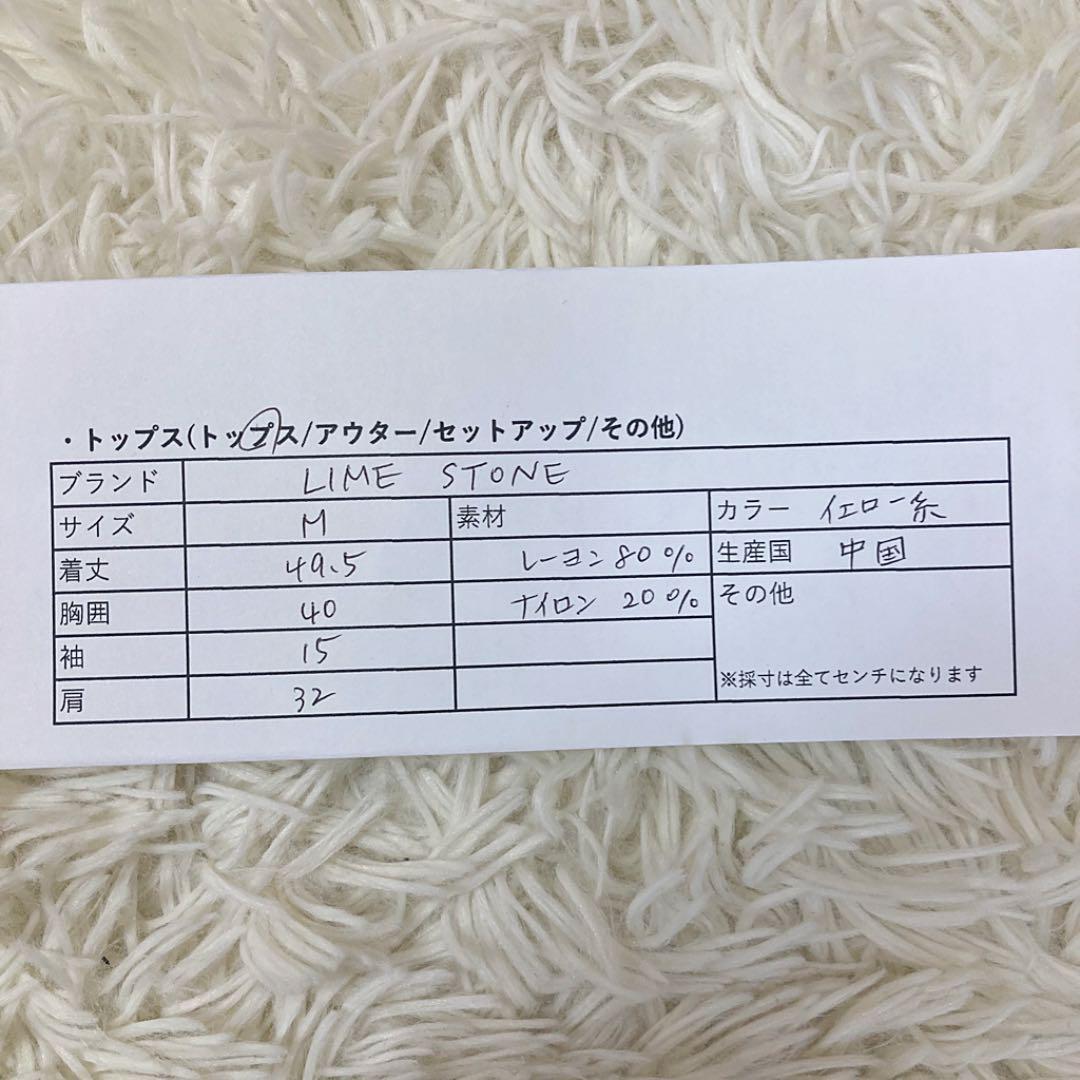 ・トップス(トップス/アウター/セットアップ/その他)
ブランド LIME STONE
サイズ M 素材 カラー イエロー系
着丈 49.5 レーヨン 80% 生産国 中国
胸囲 40 ナイロン 20% その他
袖 15
肩 32 ※採寸は全てセンチになります